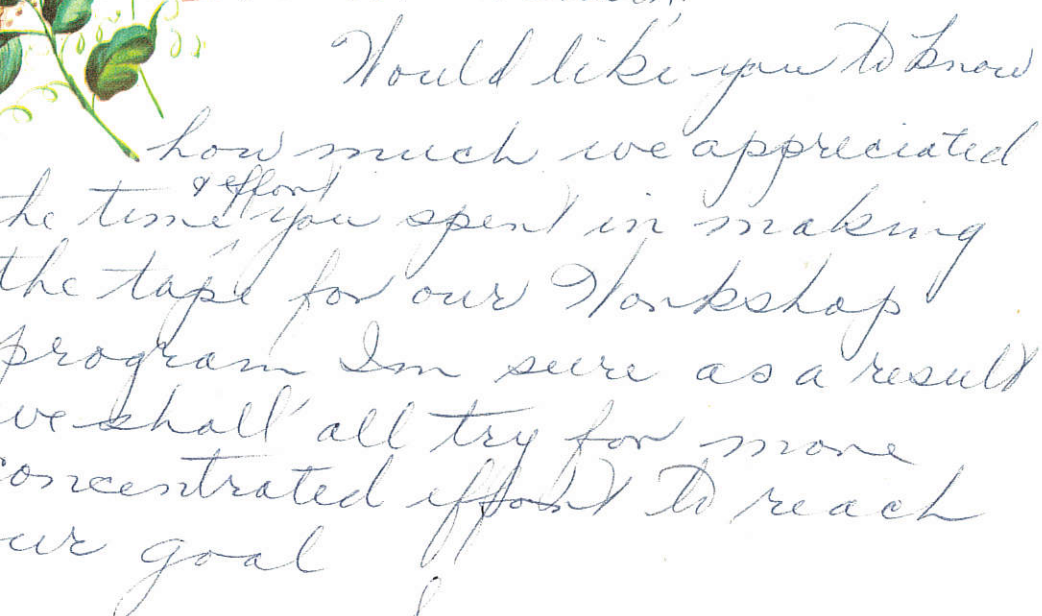 Would like you to know
how much we appreciated
he time & effort you spent in making
the tape for our Workshop
program Im sure as a result
we shall all try for more
concentrated effort to reach
ur goal